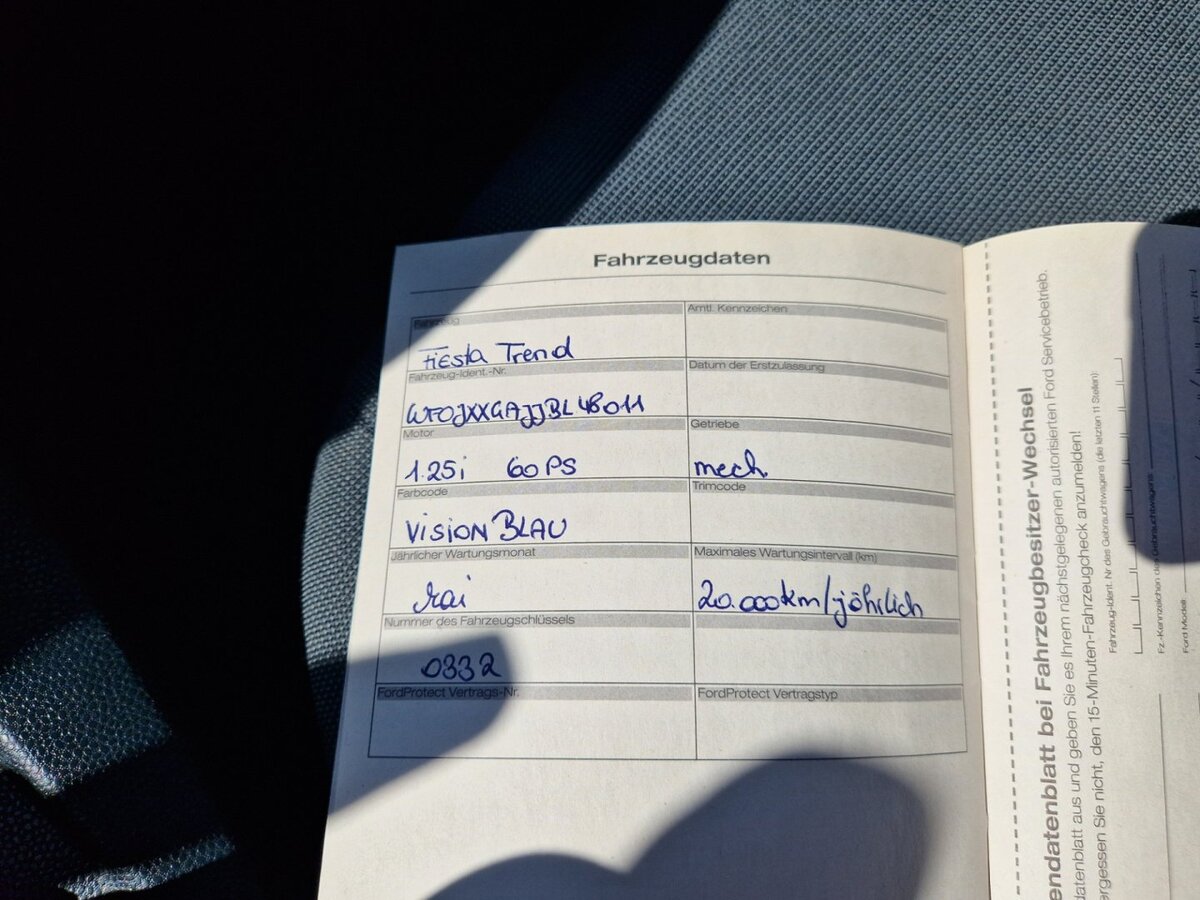 Fahrzeugdaten
Fahrzeug
Fiesta Trend
Amtl. Kennzeichen
Fahrzeug-Ident.-Nr.
WFOJXXGAJJBL48011
Datum der Erstzulassung
Motor
1.25i 60PS
Getriebe
mech.
Farbcode
VISION BLAU
Trimcode
Jährlicher Wartungsmonat
Mai
Maximales Wartungsintervall (km)
20.000km/jährlich
Nummer des Fahrzeugschlüssels
0332
FordProtect Vertrags-Nr.
FordProtect Vertragstyp
endatenblatt bei Fahrzeugbesitzer-Wechsel
datenblatt aus und geben Sie es Ihrem nächstgelegenen autorisierten Ford Servicebetrieb.
ergessen Sie nicht, den 15-Minuten-Fahrzeugcheck anzumelden!
Fahrzeug-Ident. Nr des Gebrauchtwagens (die letzten 11 Stellen):
Fz.-Kennzeichen des Gebrauchtwagens
Ford Modell: